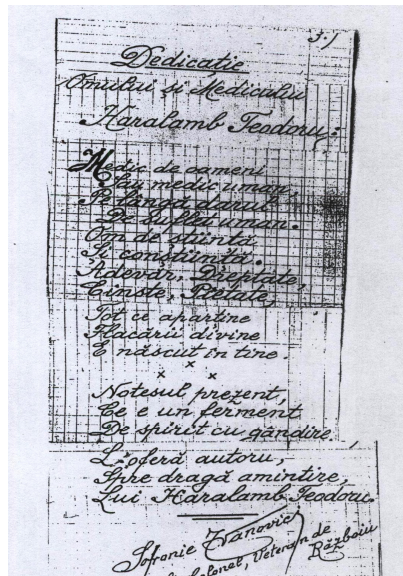 3.)
Dedicatie
Omului și Medicului
Haralamb Teodoru:
Medic de oameni
Sau medic uman,
Pe lângă darul
De suflet uman.
Om de știință
Și conștiință.
Adevăr, Dreptate,
Cinste, Pietate,
Tot ce aparține
Flacării divine
E născut în tine.
x x x
Notesul prezent,
Ce e un ferment
De spirit cu gândire,
L-oferă autoru,
Spre dragă amintire,
Lui Haralamb Teodoru.
Sofronie Ivanovici
Colonel, Veteran de
Război